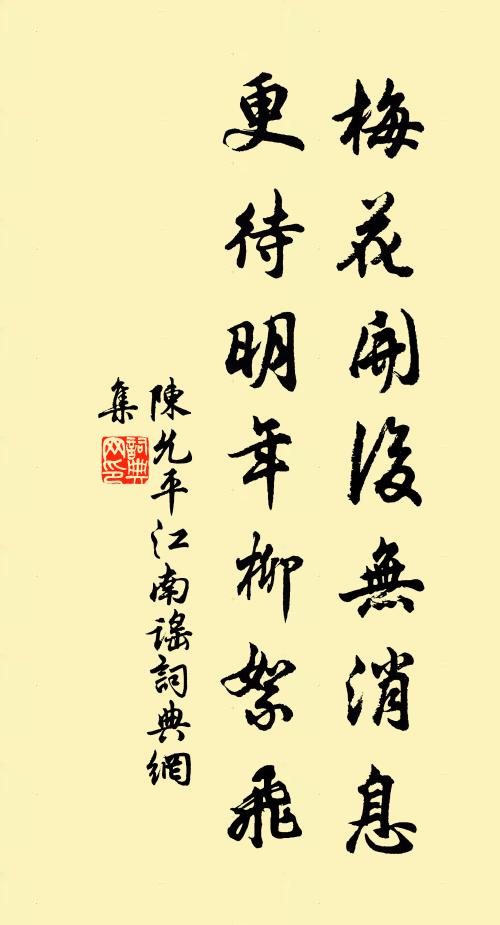 梅花開後無消息
更待明年柳絮飛
陳允平江南謠詞典網
集
詞典
网